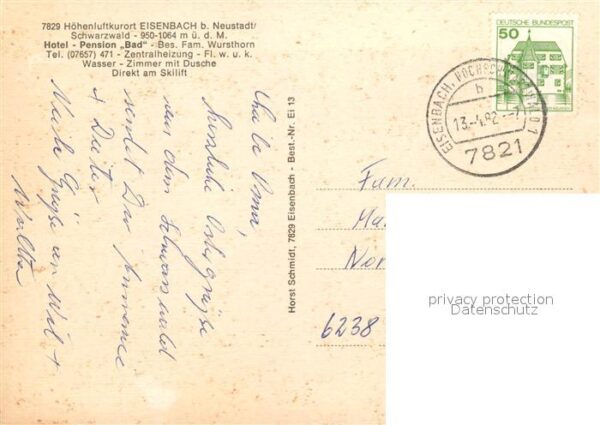 7829 Höhenluftkurort EISENBACH b. Neustadt/
Schwarzwald - 950-1064 m ü. d. M.
Hotel - Pension „Bad" - Bes. Fam. Wursthorn
Tel. (07657) 471 - Zentralheizung - Fl. w. u. k.
Wasser - Zimmer mit Dusche
Direkt am Skilift
Oma,
Herzliche Ostergrüße
aus dem Schwarzwald
sendet Dir Annemie
+ Dieter
Viele Grüße an Willi +
Walter
Horst Schmidt, 7829 Eisenbach - Best.-Nr. Ei 13
50
DEUTSCHE BUNDESPOST
EISENBACH, HOCHSCHWARZWALD 1
b
13.-4.82.-7
7821
Fam.
Ma
Nor
6238
privacy protection
Datenschutz